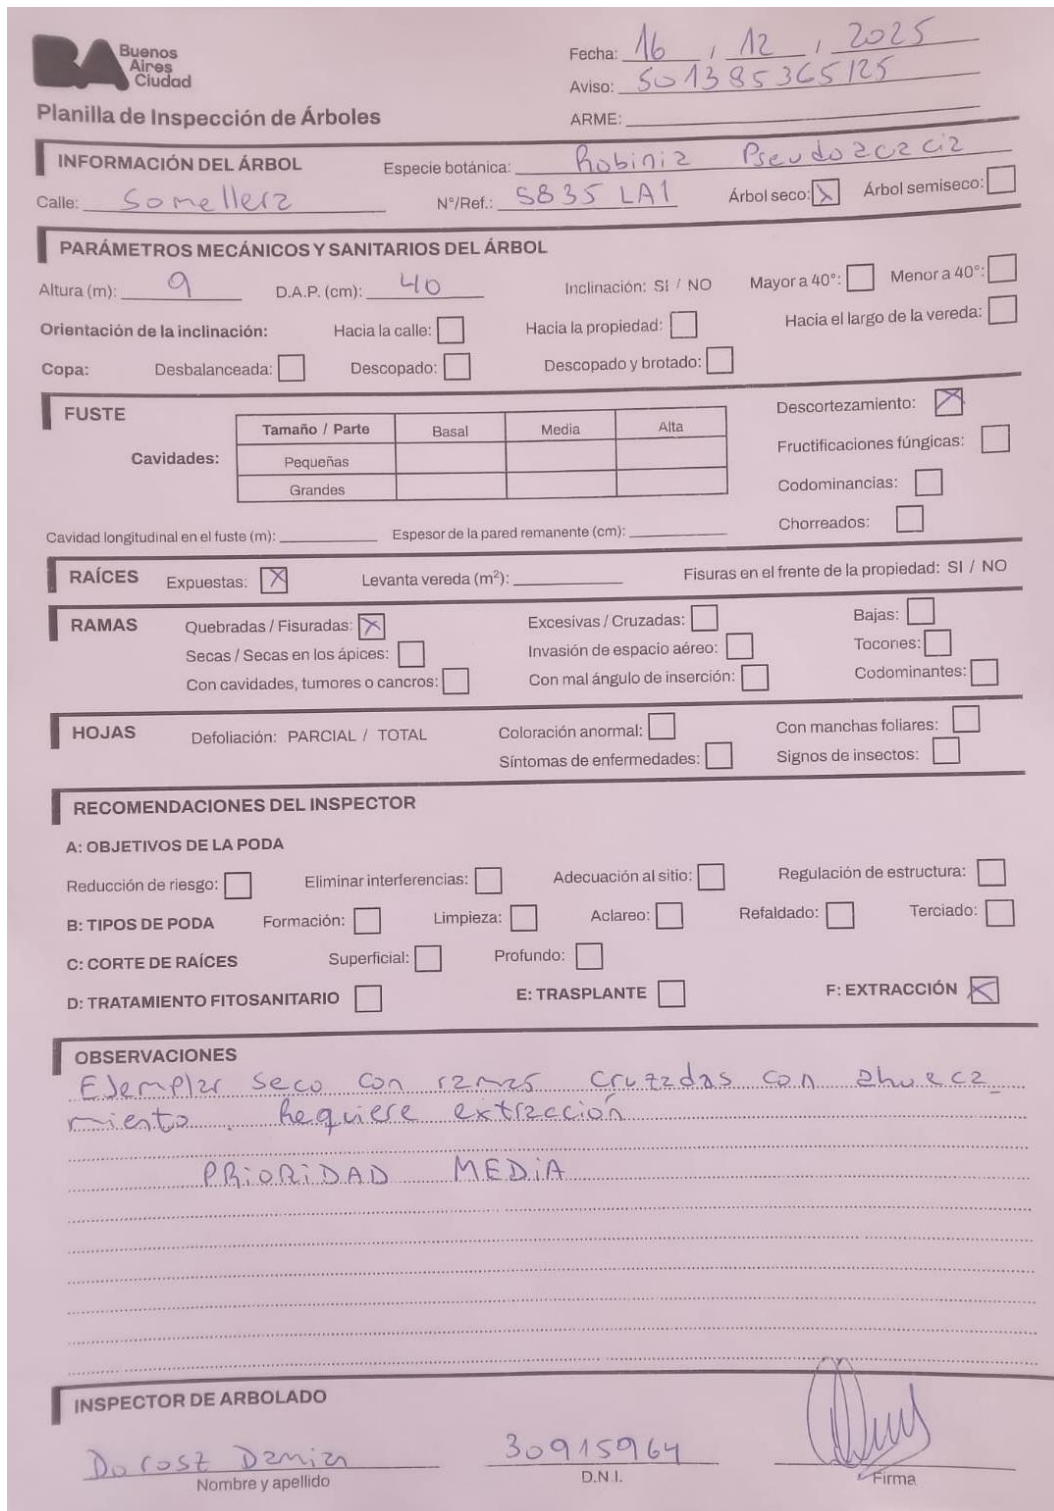 BA Buenos Aires Ciudad
Fecha: 16 / 12 / 2025
Aviso: 501385365/25
Planilla de Inspección de Árboles
ARME:
INFORMACIÓN DEL ÁRBOL Especie botánica: Robinia Pseudoacacia
Calle: Somellera N°/Ref.: 5835 LA1 Árbol seco: X Árbol semiseco:
PARÁMETROS MECÁNICOS Y SANITARIOS DEL ÁRBOL
Altura (m): 9 D.A.P. (cm): 40 Inclinación: SI / NO Mayor a 40°: Menor a 40°:
Orientación de la inclinación: Hacia la calle: Hacia la propiedad: Hacia el largo de la vereda:
Copa: Desbalanceada: Descopado: Descopado y brotado:
FUSTE
Descortezamiento: X
Tamaño / Parte Basal Media Alta
Cavidades: Pequeñas
Fructificaciones fúngicas:
Grandes
Codominancias:
Chorreados:
Cavidad longitudinal en el fuste (m): Espesor de la pared remanente (cm):
RAÍCES Expuestas: X Levanta vereda (m²): Fisuras en el frente de la propiedad: SI / NO
RAMAS Quebradas / Fisuradas: X Excesivas / Cruzadas: Bajas:
Secas / Secas en los ápices: Invasión de espacio aéreo: Tocones:
Con cavidades, tumores o cancros: Con mal ángulo de inserción: Codominantes:
HOJAS Defoliación: PARCIAL / TOTAL Coloración anormal: Con manchas foliares:
Síntomas de enfermedades: Signos de insectos:
RECOMENDACIONES DEL INSPECTOR
A: OBJETIVOS DE LA PODA
Reducción de riesgo: Eliminar interferencias: Adecuación al sitio: Regulación de estructura:
B: TIPOS DE PODA Formación: Limpieza: Aclareo: Refaldado: Terciado:
C: CORTE DE RAÍCES Superficial: Profundo:
D: TRATAMIENTO FITOSANITARIO E: TRASPLANTE F: EXTRACCIÓN X
OBSERVACIONES
Ejemplar seco con ramas cruzadas con ahueca_
miento. Requiere extracción
PRIORIDAD MEDIA
INSPECTOR DE ARBOLADO
Dorosz Damian 30915964
Nombre y apellido D.N.I. Firma